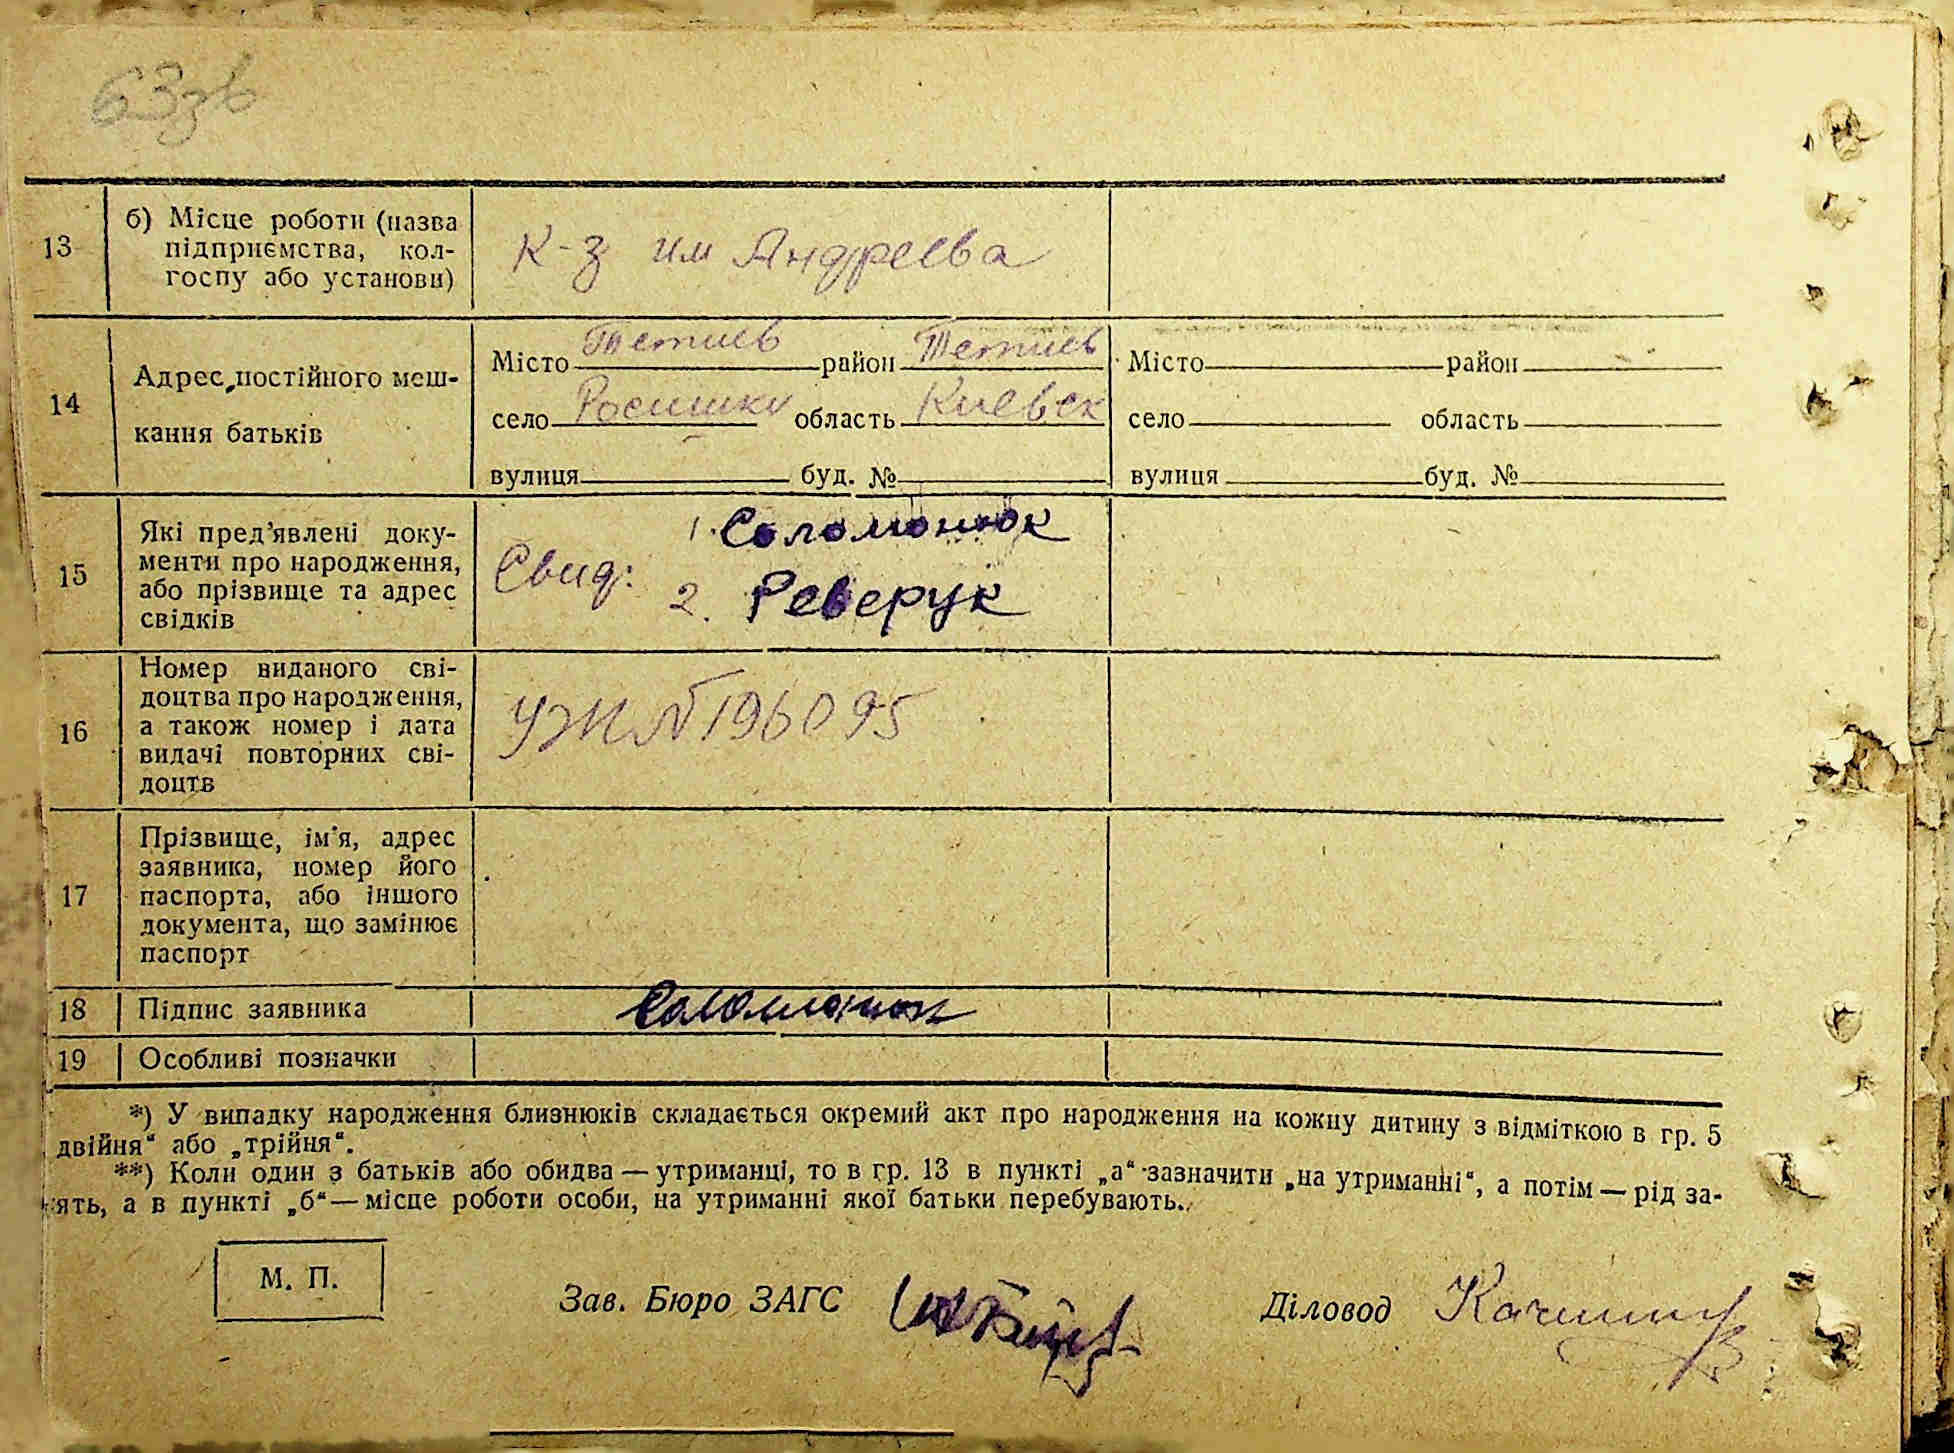 63зв
13
б) Місце роботи (назва
підприємства, кол-
госпу або установи)
К-з им Андреева
14
Адрес постійного меш-
кання батьків
Місто Тетиев район Тетиев
село Росишки область Киевск
вулиця буд. №
Місто район
село область
вулиця буд. №
15
Які пред’явлені доку-
менти про народження,
або прізвище та адрес
свідків
Свид: 1. Соломонюк
2. Реверук
16
Номер виданого сві-
доцтва про народження,
а також номер і дата
видачі повторних сві-
доцтв
УЖ № 196095
17
Прізвище, ім’я, адрес
заявника, номер його
паспорта, або іншого
документа, що замінює
паспорт
18 Підпис заявника Соломонюк
19 Особливі позначки
*) У випадку народження близнюків складається окремий акт про народження на кожну дитину з відміткою в гр. 5
двійня“ або „трійня“.
**) Коли один з батьків або обидва — утриманці, то в гр. 13 в пункті „а“ зазначити „на утриманні“, а потім — рід за-
ять, а в пункті „б“ — місце роботи особи, на утриманні якої батьки перебувають.
М. П.
Зав. Бюро ЗАГС
Діловод